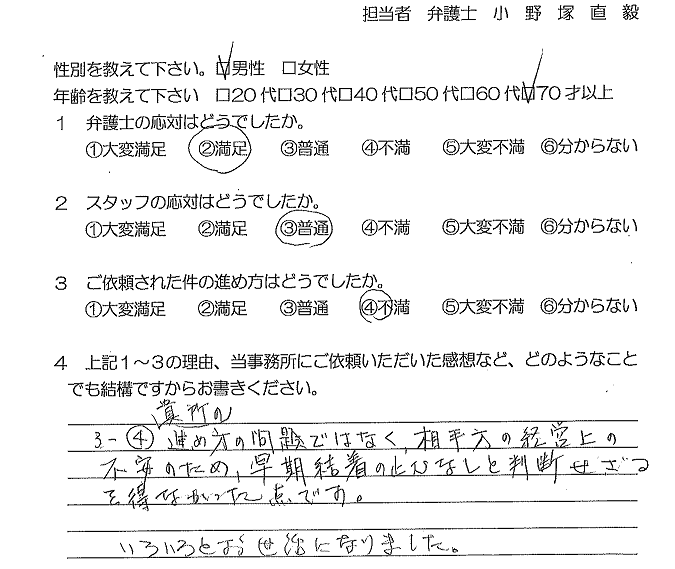 担当者 弁護士 小 野 塚 直 毅
性別を教えて下さい。☑男性 □女性
年齢を教えて下さい □20代□30代□40代□50代□60代☑70才以上
1 弁護士の応対はどうでしたか。
①大変満足 ②満足 ③普通 ④不満 ⑤大変不満 ⑥分からない
2 スタッフの応対はどうでしたか。
①大変満足 ②満足 ③普通 ④不満 ⑤大変不満 ⑥分からない
3 ご依頼された件の進め方はどうでしたか。
①大変満足 ②満足 ③普通 ④不満 ⑤大変不満 ⑥分からない
4 上記1～3の理由、当事務所にご依頼いただいた感想など、どのようなこと
でも結構ですからお書きください。
貴所の
3-④ 進め方の問題ではなく、相手方の経営上の
不安のため、早期結着の止むなしと判断せざる
を得なかった点です。
いろいろとお世話になりました。